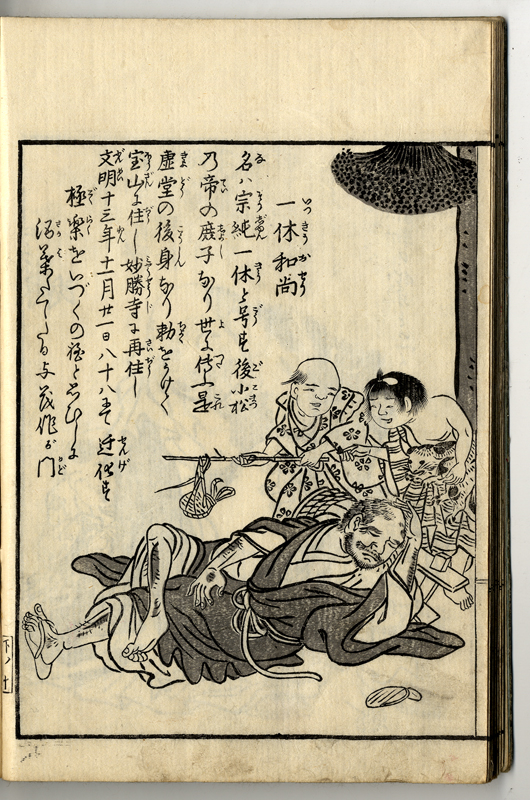 一休和尚
名ハ宗純一休と号す後小松
乃帝の庶子なり世に傳ふ是
虚堂の後身なり勅をうけて
宝山に住し妙勝寺に再住し
文明十三年十一月廿一日八十八にて遷化す
極楽をいづくの程とおもひしに
杉葉たてたる与茂作が門
下ノ十